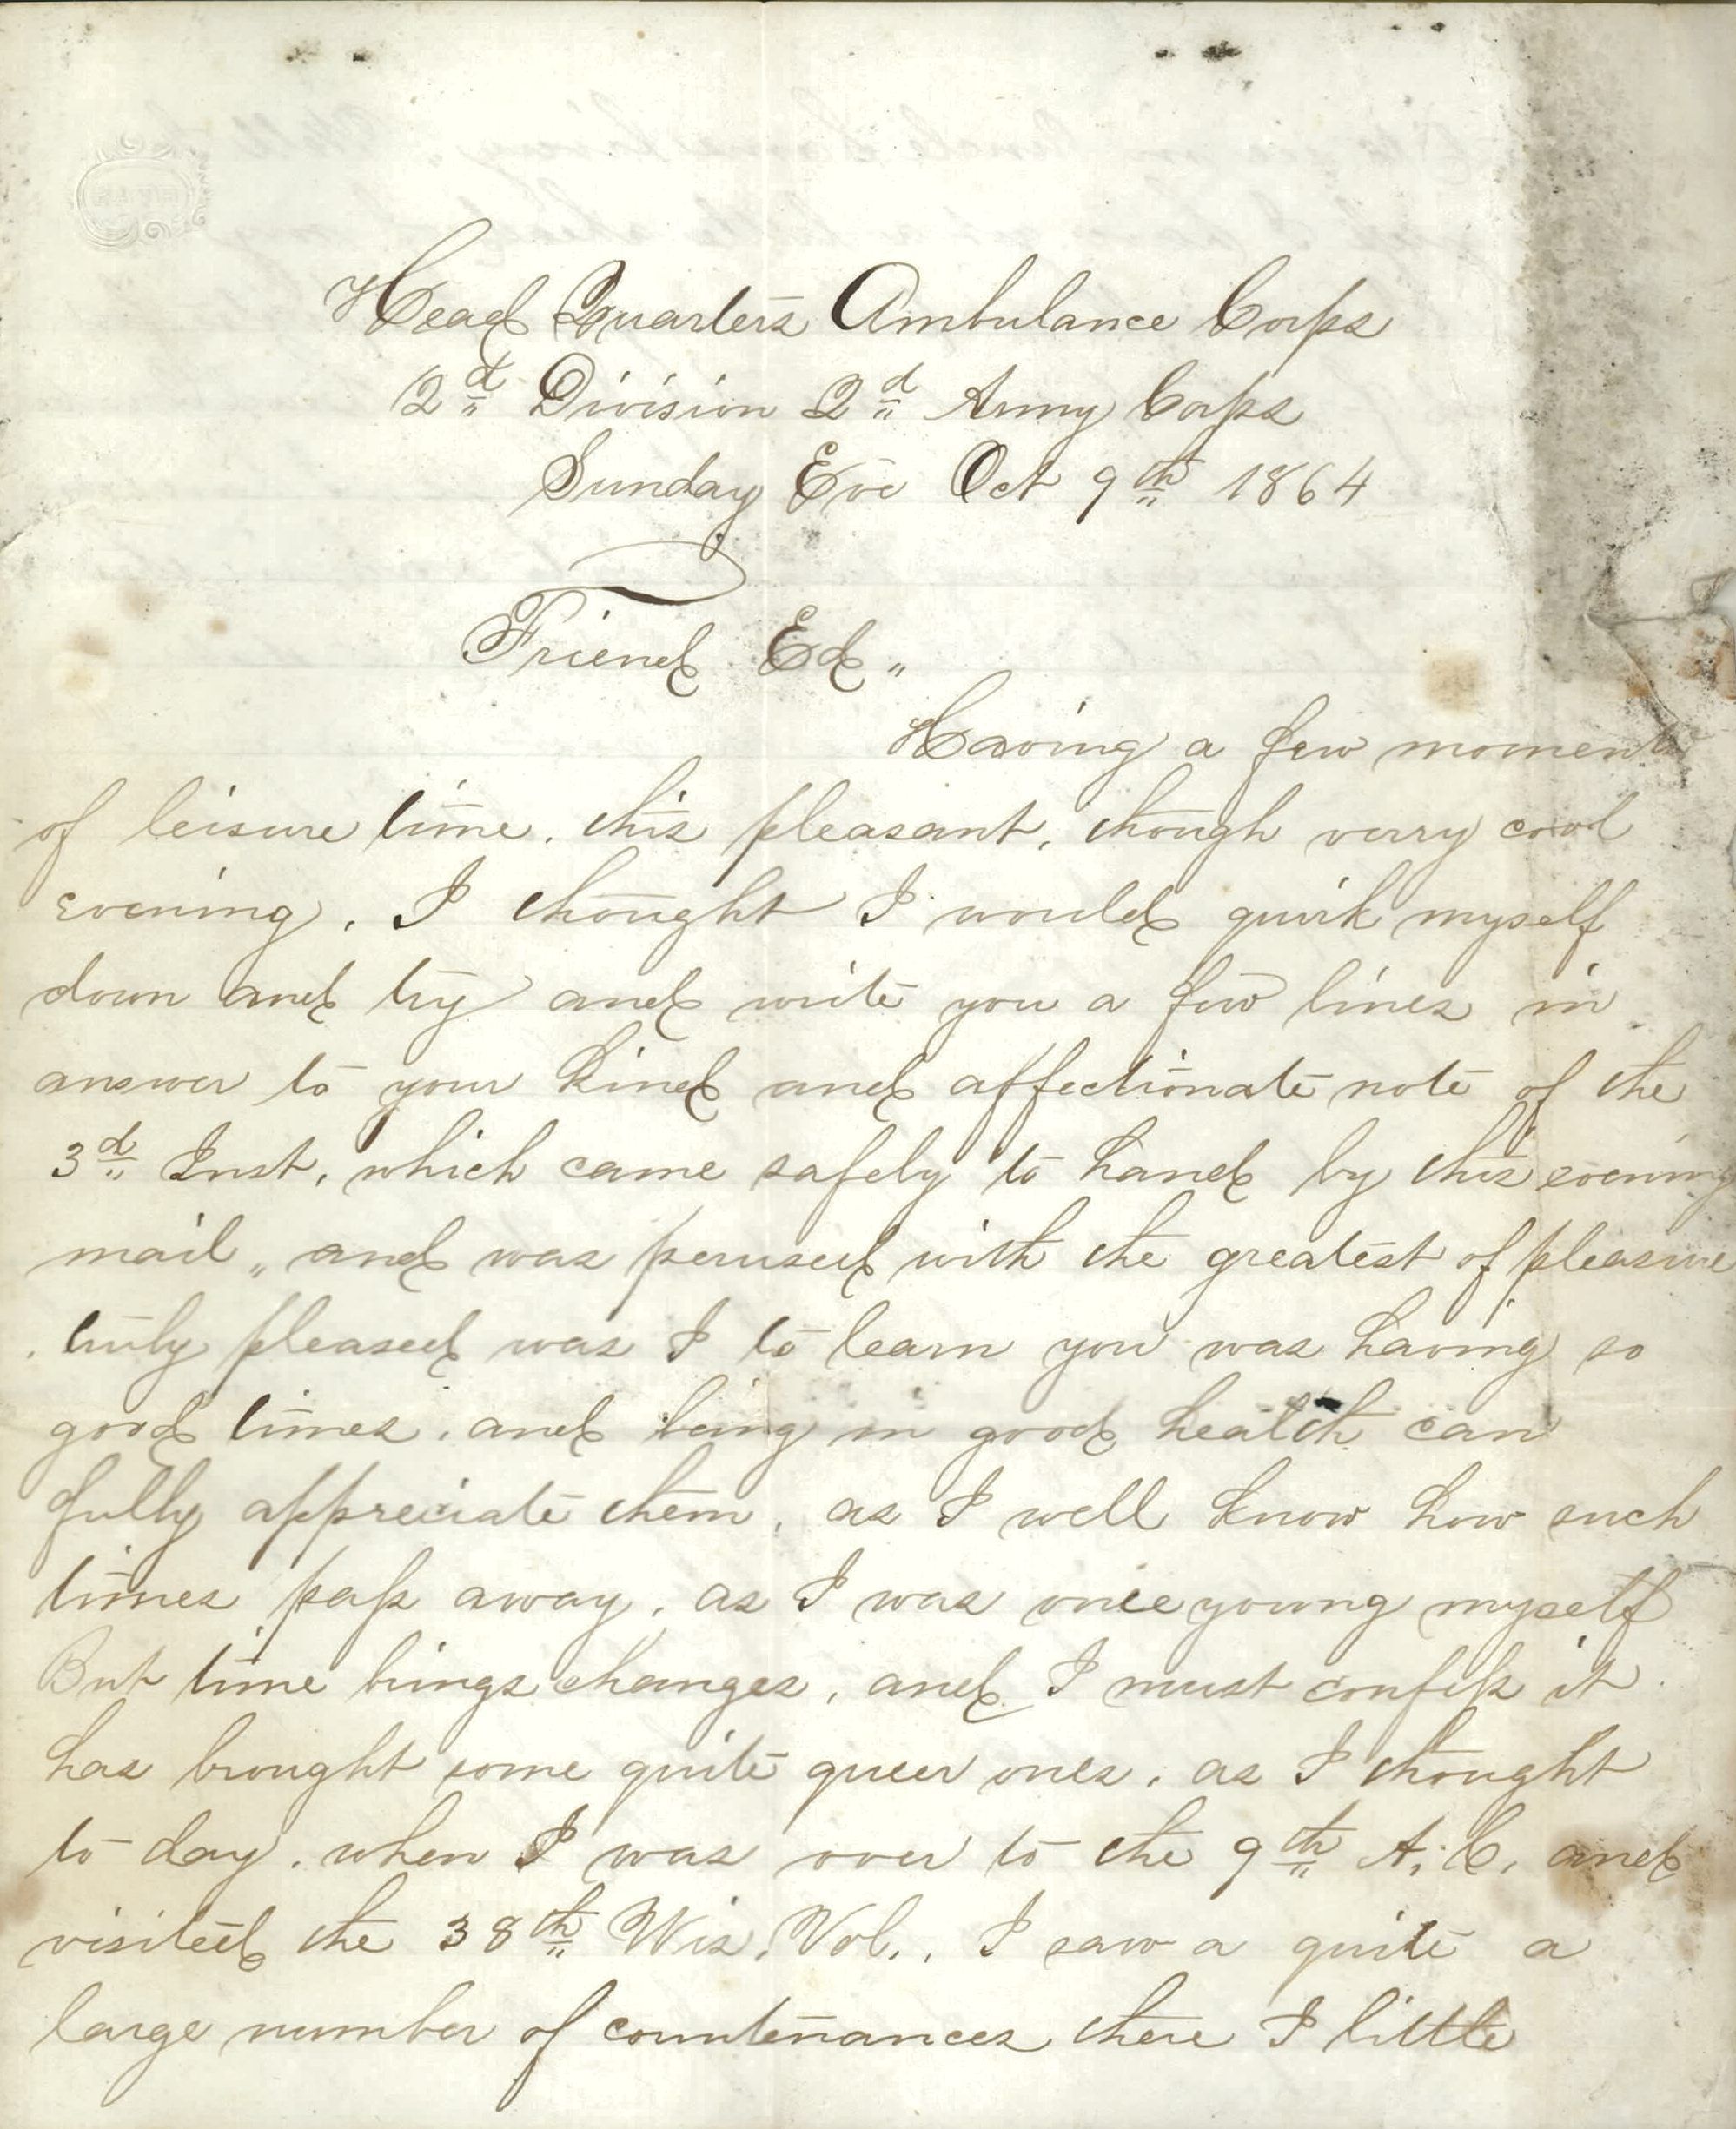 Head Quarters Ambulance Corps
2d Division 2d Army Corps
Sunday Eve Oct 9th 1864
Friend Ed "
Having a few moments
of leisure time. this pleasant, though verry cool
evening. I thought I would quirk myself
down and try and write you a few lines in
answer to your kind and affectionate note of the
3d Inst, which came safely to hand by this evening
mail " and was perused with the greatest of pleasure
. truly pleased was I to learn you was having so
good times. and being in good health can
fully appreciate them, as I well know how such
times pass away, as I was once young myself
But time brings changes, and I must confess it
has brought some quite queer ones. as I thought
to day. when I was over to the 9th A. C. and
visited the 38th Wis. Vol.. I saw a quite a
large number of countenances there I little